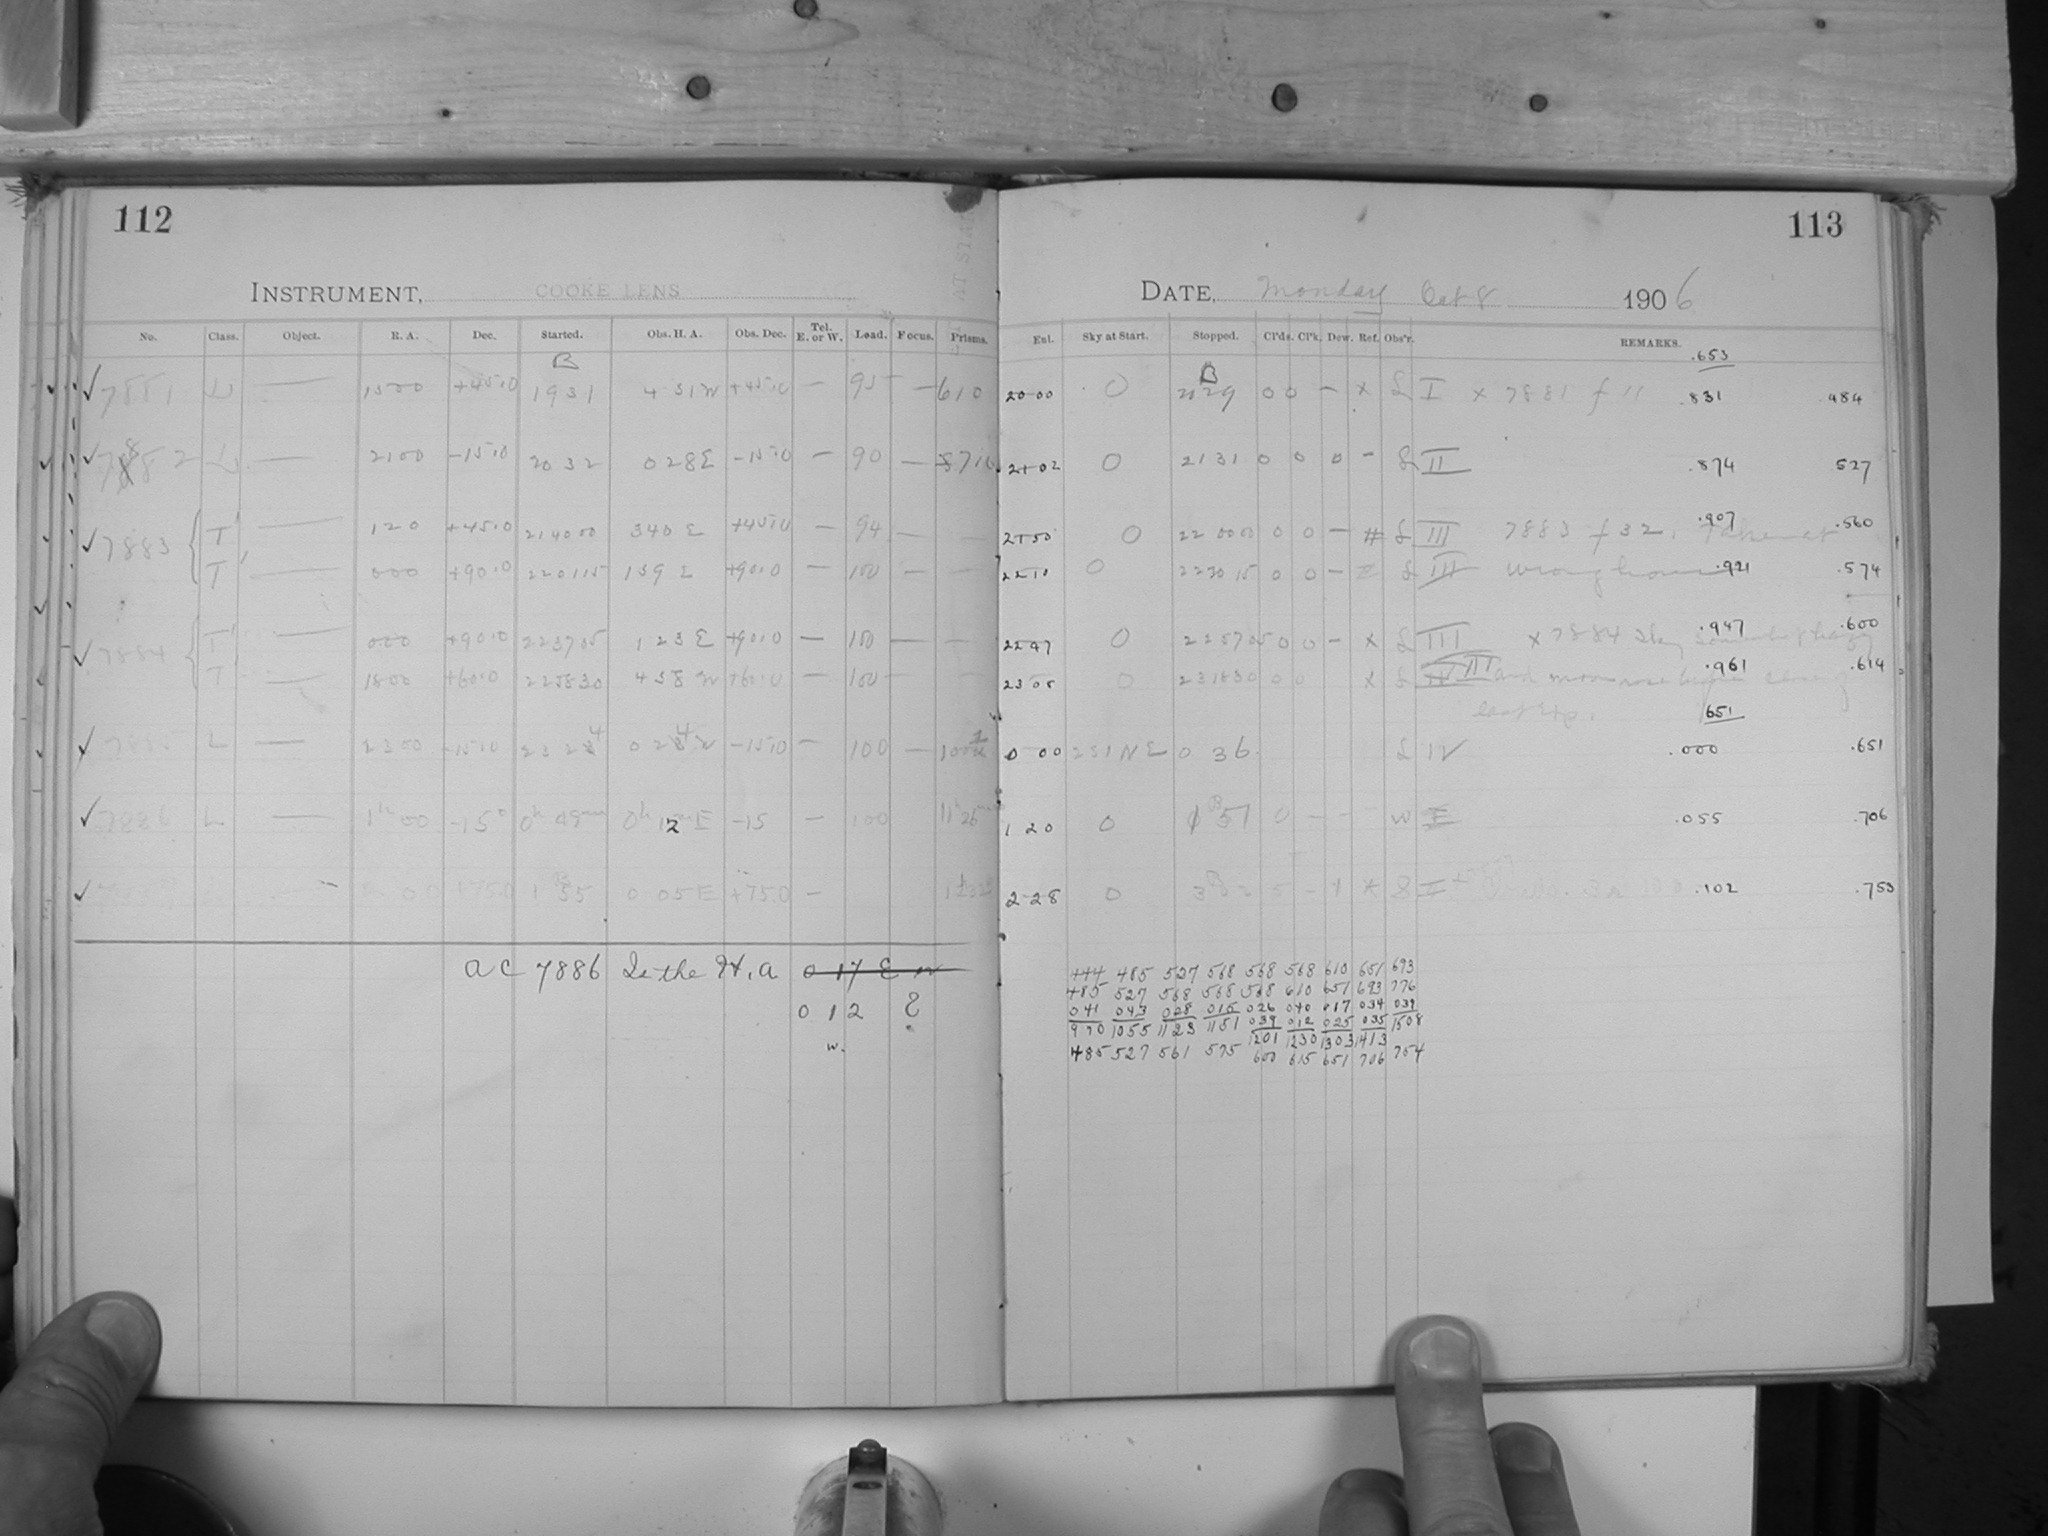 112
INSTRUMENT, COOKE LENS
No. Class. Object. R. A. Dec. Started. Obs. H. A. Obs. Dec. Tel. E. or W. Load. Focus. Prisms.
B
✓ 7881 L — 1500 +45.0 1931 4 31 W +45.0 — 95 — 610
✓ 7882 L — 2100 -15.0 2032 0 28 E -15.0 — 90 — 710
✓ 7883 T — 120 +45.0 214000 340 E +45.0 — 94 — —
T — 000 +90.0 220115 159 E +90.0 — 100 — —
✓ 7884 T — 000 +90.0 223705 1 23 E +90.0 — 100 — —
T — 1800 +60.0 225830 438 W +60.0 — 100 — —
7885 L — 2300 -15.0 2324 0 24 W -15.0 — 100 —
✓ 7886 L — 1h 00 -15° 0h 49m 0h 12 E -15 — 100 11h 26m
✓ 00 +75.0 1 55 0 05 E +75.0 —
A C 7886 Is the H. A 0 17 E w
0 1 2 E
w.
113
DATE, Monday Oct 8 1906
Ent. Sky at Start. Stopped. Cl'ds. Cl'k. Dew. Ref. Obs'r. REMARKS.
.653
B
20 00 0 2029 0 0 — x S I x 7881 f 11 .831 .484
21 02 0 2131 0 0 0 - S II .874 527
21 50 0 220000 0 0 — # S III 7883 f 32. Taken at .907 .560
22 10 0 223015 0 0 — S III wrong hour .921 .574
22 47 0 225705 0 0 — x S III x 7884 Sky somewhat hazy .947 .600
23 08 0 231830 0 0 x S III and moon rose before close of .961 .614
last exp. 651
0 00 251 NE 0 36 S IV .000 .651
1 20 0 1 51 0 — - W .055 .706
2 28 0 S .102 .753
444 485 527 568 568 568 610 651 693
485 527 568 568 568 610 651 693 776
041 043 028 015 026 040 017 034 039
970 1055 1123 1151 039 012 025 035 1508
1201 1230 1303 1413
485 527 561 575 600 615 651 706 754